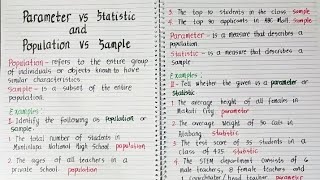 Parameter vs Statistic
and
Population vs Sample
Population - refers to the entire group
of individuals or objects known to have
similar characteristics.
Sample - is a subset of the entire
population.
Examples:
I. Identify the following as population or
sample.
1. The total number of students in
Muntinlupa National High School population
2. The ages of all teachers in a
private school population
3. The top 10 students in the class sample
4. The top 90 applicants in ABC Mall sample
Parameter - is a measure that describes a
population.
Statistic - is a measure that describes a
sample.
Examples:
II - Tell whether the given is a parameter or
statistic
1. The average height of all females in
Makati City parameter
2. The average weight of 50 cats in
statistic
3. The test score of 35 students in a
class of 425 statistic
4. The STEM department consists of 6
male teachers, 8 female teachers and
1 coordinator/head teacher parameter